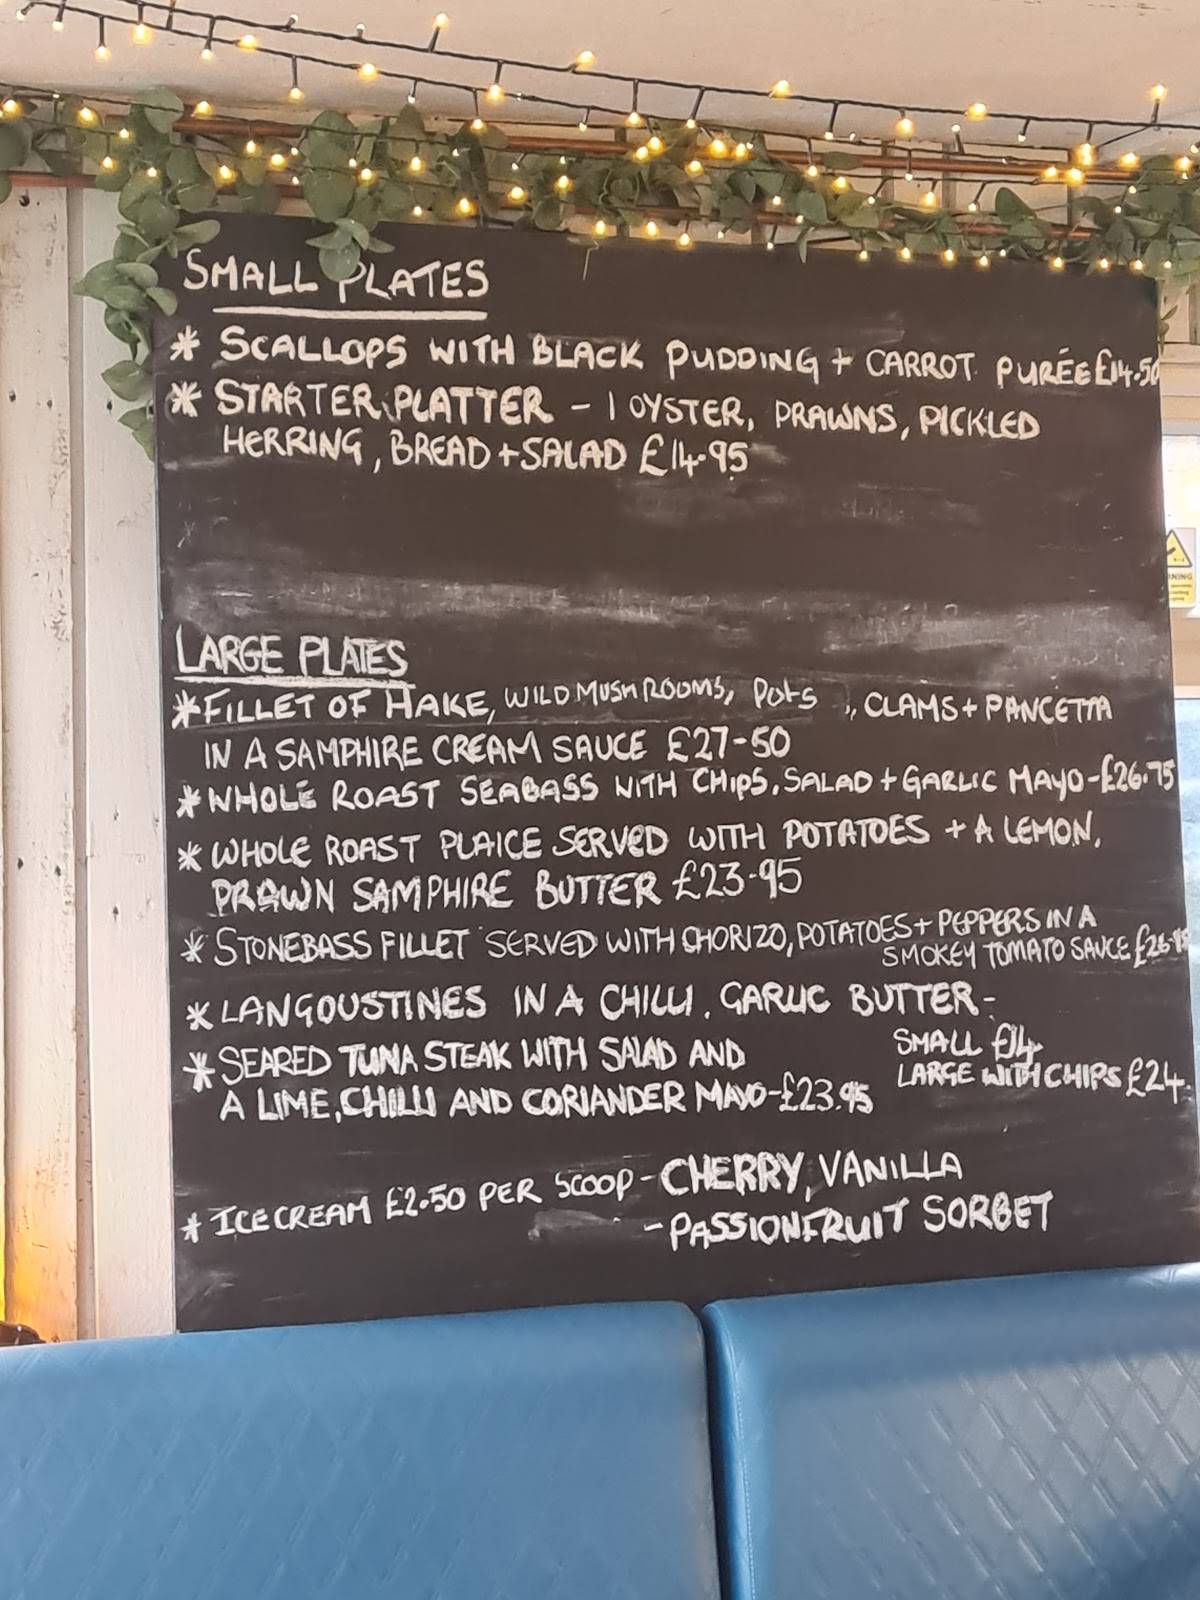 SMALL PLATES
* SCALLOPS WITH BLACK PUDDING + CARROT PURÉE £14.50
* STARTER PLATTER - 1 OYSTER, PRAWNS, PICKLED
HERRING, BREAD + SALAD £14.95
LARGE PLATES
* FILLET OF HAKE, WILD MUSHROOMS, POTS , CLAMS + PANCETTA
IN A SAMPHIRE CREAM SAUCE £27-50
* WHOLE ROAST SEABASS WITH CHIPS, SALAD + GARLIC MAYO - £26.75
* WHOLE ROAST PLAICE SERVED WITH POTATOES + A LEMON,
PRAWN SAMPHIRE BUTTER £23-95
* STONEBASS FILLET SERVED WITH CHORIZO, POTATOES + PEPPERS IN A
SMOKEY TOMATO SAUCE
* LANGOUSTINES IN A CHILLI, GARLIC BUTTER -
SMALL £14
LARGE WITH CHIPS £24
* SEARED TUNA STEAK WITH SALAD AND
A LIME, CHILLI AND CORIANDER MAYO - £23.95
* ICE CREAM £2.50 PER SCOOP - CHERRY, VANILLA
- PASSIONFRUIT SORBET